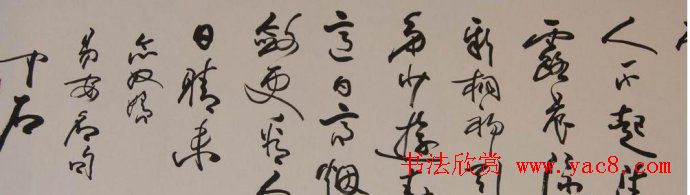 人不起清
露晨流
新桐初引
多少遊春
意日高烟
斂更看今
日晴未
念奴嬌
易安居句
中石
书法欣赏 www.yac8.com